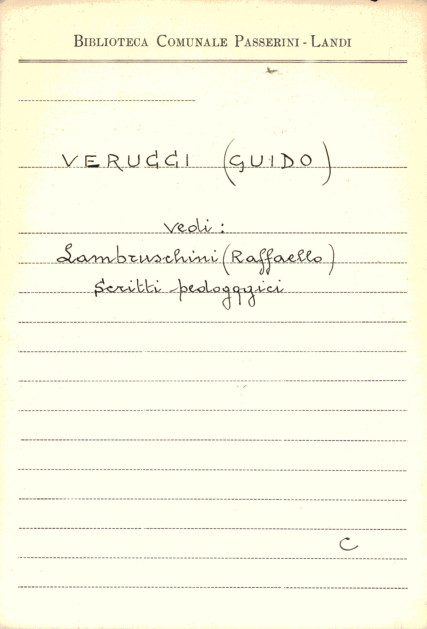 BIBLIOTECA COMUNALE PASSERINI - LANDI
VERUGGI (GUIDO)
vedi :
Lambruschini (Raffaello)
Scritti pedagogici
C